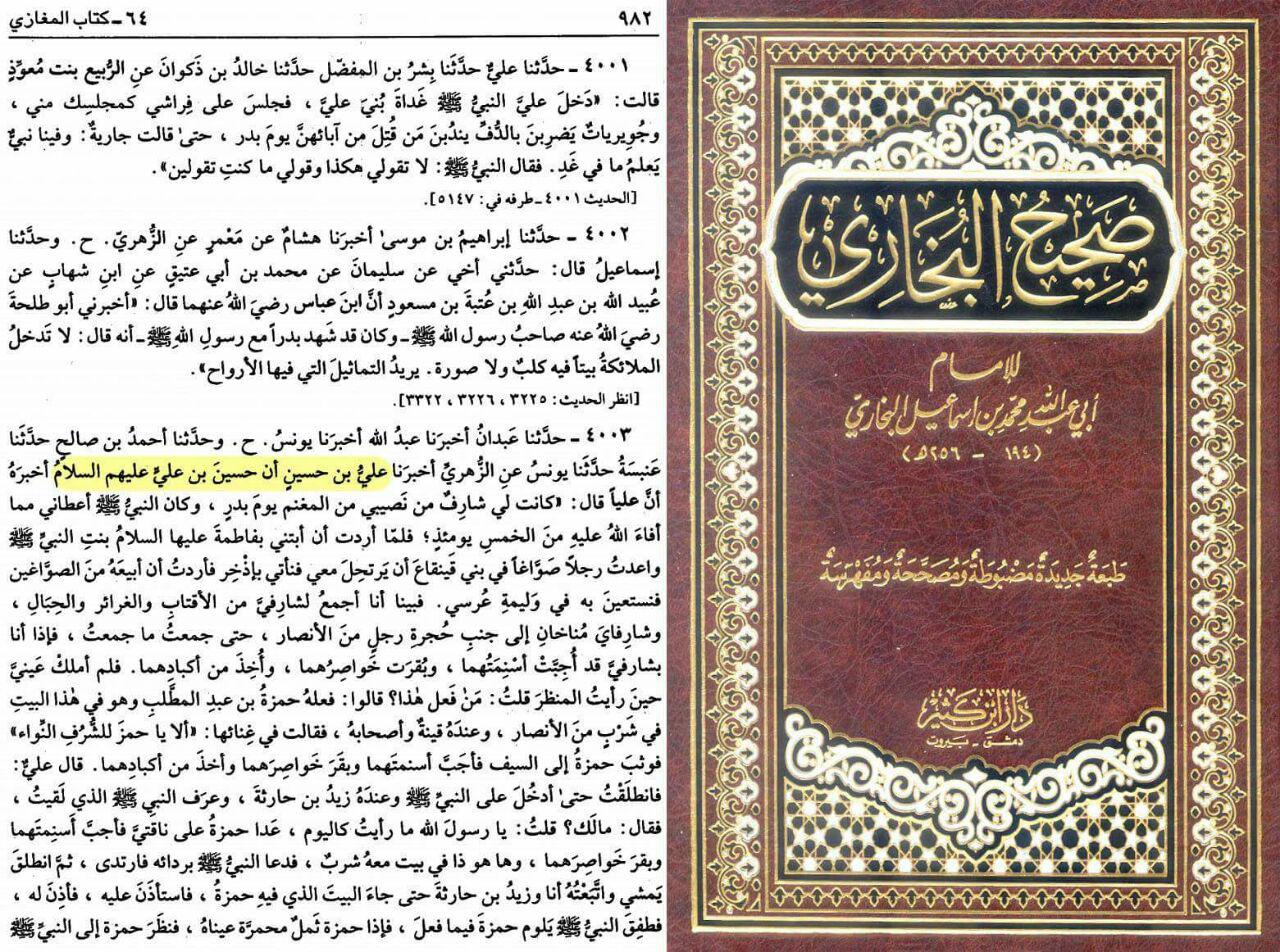 ٩٨٢
٦٤ـ كتاب المغازي
٤٠٠١ ـ حدَّثنا عليٌّ حدَّثَنا بِشرُ بن المفضّل حدَّثنا خالدُ بن ذَكوانَ عنِ الرُّبيع بنت مُعوِّذٍ
قالت: «دَخلَ عليَّ النبيُّ ﷺ غَداةَ بُنيَ عليَّ ، فجلسَ على فِراشي كمجلسِك مني ،
وجُويرياتٌ يَضرِبنَ بالدُّفِّ يندُبنَ مَن قُتِلَ من آبائهنَّ يومَ بدر ، حتىٰ قالت جاريةٌ: وفينا نبيٌّ
يَعلمُ ما في غَدِ. فقال النبيُّ ﷺ: لا تقولي هكذا وقولي ما كنتِ تقولين».
[الحديث ٤٠٠١ ـ طرفه في: ٥١٤٧].
٤٠٠٢ ـ حدَّثنا إبراهيمُ بن موسىٰ أخبرَنا هشامٌ عن مَعْمرٍ عنِ الزُّهريّ. ح. وحدَّثنا
إسماعيلُ قال: حدَّثني أخي عن سليمانَ عن محمد بن أبي عتيقٍ عنِ ابنِ شهابٍ عن
عُبيد الله بن عبدِ اللهِ بن عُتبةَ بن مسعودٍ أنَّ ابنَ عباس رضيَ اللهُ عنهما قال: «أخبرني أبو طلحةَ
رضيَ اللهُ عنه صاحبُ رسول الله ﷺ ـ وكان قد شَهد بدراً مع رسولِ اللهِ ﷺ ـ أنه قال: لا تَدخلُ
الملائكةُ بيتاً فيه كلبٌ ولا صورة. يريدُ التماثيلَ التي فيها الأرواح».
[انظر الحديث: ٣٢٢٥ ، ٣٢٢٦ ، ٣٣٢٢].
٤٠٠٣ ـ حدَّثنا عَبدانُ أخبرَنا عبدُ الله أخبرَنا يونسُ. ح. وحدَّثنا أحمدُ بن صالحٍ حدَّثَنا
عَنبسَةُ حدَّثَنا يونسُ عنِ الزُّهريِّ أخبرَنا عليُّ بن حسينٍ أن حسينَ بن عليٍّ عليهم السلامُ أخبرَهُ
أنَّ علياً قال: «كانت لي شارِفٌ من نَصيبي من المغنم يومَ بدرٍ ، وكان النبيُّ ﷺ أعطاني مما
أفاءَ اللهُ عليهِ منَ الخمسِ يومئذٍ؛ فلمّا أردت أن أبتني بفاطمةَ عليها السلامُ بنتِ النبيِّ ﷺ
واعدتُ رجلًا صَوَّاغاً في بني قينقاعَ أن يَرتحِلَ معي فنأتي بإذْخِرٍ فأردتُ أن أبيعَهُ منَ الصواغين
فنستعينَ به في وَليمةِ عُرسي. فبينا أنا أجمعُ لشارِفيَّ من الأقتابِ والغرائر والحِبَالِ ،
وشارِفايَ مُناخانِ إلى جنبِ حُجرةِ رجلٍ منَ الأنصار ، حتى جمعتُ ما جمعتُ ، فإذا أنا
بشارِفيَّ قد أُجِبَّتْ أسْنِمَتُهما ، وبُقرَت خَواصِرُهما ، وأُخِذَ من أكبادِهما. فلم أملكْ عَينيَّ
حينَ رأيتُ المنظرَ قلتُ: مَنْ فعل هٰذا؟ قالوا: فعلهُ حمزةُ بن عبدِ المطَّلبِ وهو في هٰذا البيتِ
في شَرْبٍ منَ الأنصار ، وعندَهُ قَينةٌ وأصحابهُ ، فقالت في غِنائها: «ألا يا حمزَ للشُّرُفِ النِّواء»
فوثبَ حمزةُ إلى السيف فأجَبَّ أسنمتَهما وبقرَ خَواصِرَهما وأخذَ من أكبادِهما. قال عليٌّ:
فانطلَقْتُ حتىٰ أدخُلَ على النبيِّ ﷺ وعندَهُ زيدُ بن حارثةَ ، وعرَف النبي ﷺ الذي لَقيتُ ،
فقال: مالَك؟ قلتُ: يا رسولَ الله ما رأيتُ كاليوم ، عَدا حمزةُ على ناقتيَّ فأجبَّ أسنِمتَهما
وبقرَ خَواصِرَهما ، وها هو ذا في بيت معهُ شربٌ ، فدعا النبيُّ ﷺ بردائه فارتدى ، ثمَّ انطلقَ
يَمشي واتَّبَعْتُهُ أنا وزيدُ بن حارثةَ حتى جاءَ البيتَ الذي فيهِ حمزةُ ، فاستأذَنَ عليه ، فأذِنَ له ،
فطفِقَ النبيُّ ﷺ يَلومِ حمزةَ فيما فعلَ ، فإذا حمزةُ ثَملٌ محمرَّة عيناهُ ، فنظَر حمزة إلى النبيِّ ﷺ
صَحِيحُ البُخَارِي
للإمام
أبي عبد الله محمد بن اسماعيل البخاريّ
(١٩٤ - ٢٥٦هـ)
طبعة جديدة مضبوطة ومصححة ومفهرسة
دار ابن كثير
دمشق - بيروت